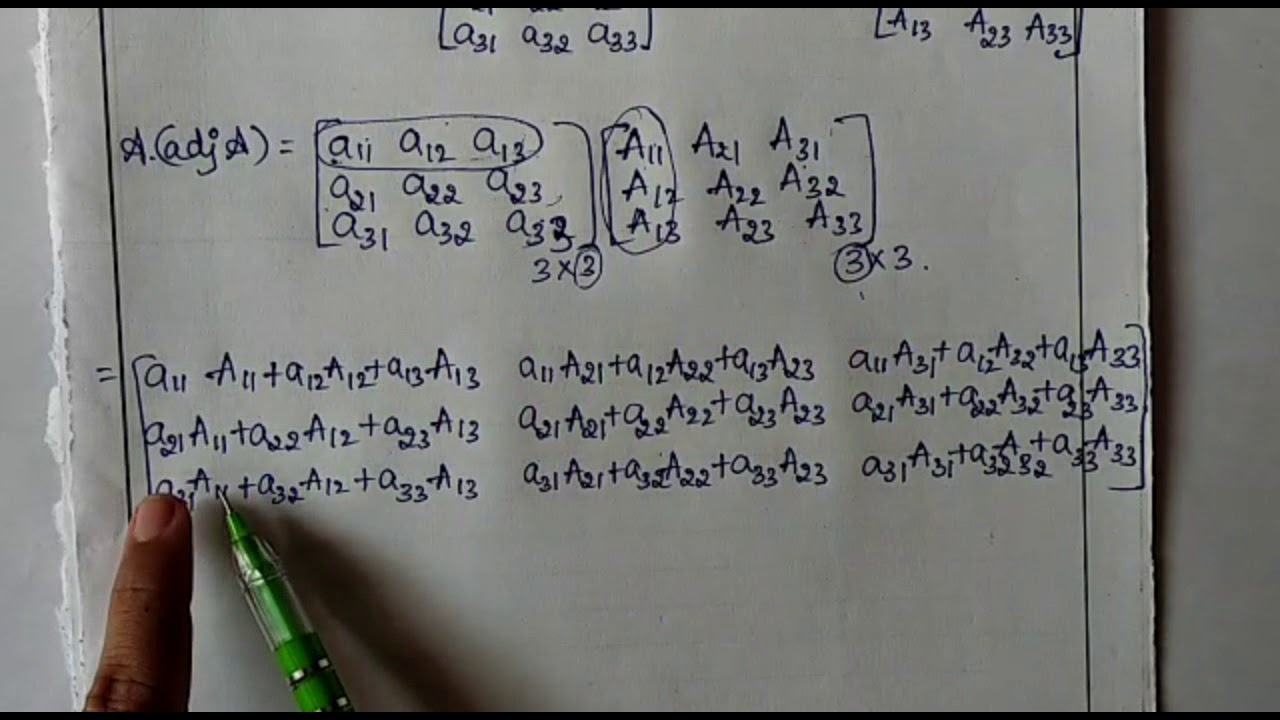 [a31 a32 a33] [A13 A23 A33]
A.(adj A) = [a11 a12 a13] [A11 A21 A31]
a21 a22 a23 A12 A22 A32
a31 a32 a33 A13 A23 A33
3×3 3×3.
= [a11 A11+a12A12+a13A13 a11A21+a12A22+a13A23 a11A31+a12A32+a13A33]
a21A11+a22A12+a23A13 a21A21+a22A22+a23A23 a21A31+a22A32+a23A33
a31A11+a32A12+a33A13 a31A21+a32A22+a33A23 a31A31+a32A32+a33A33